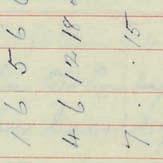 1 6 5 6
4 6 12 18
7 . . 15